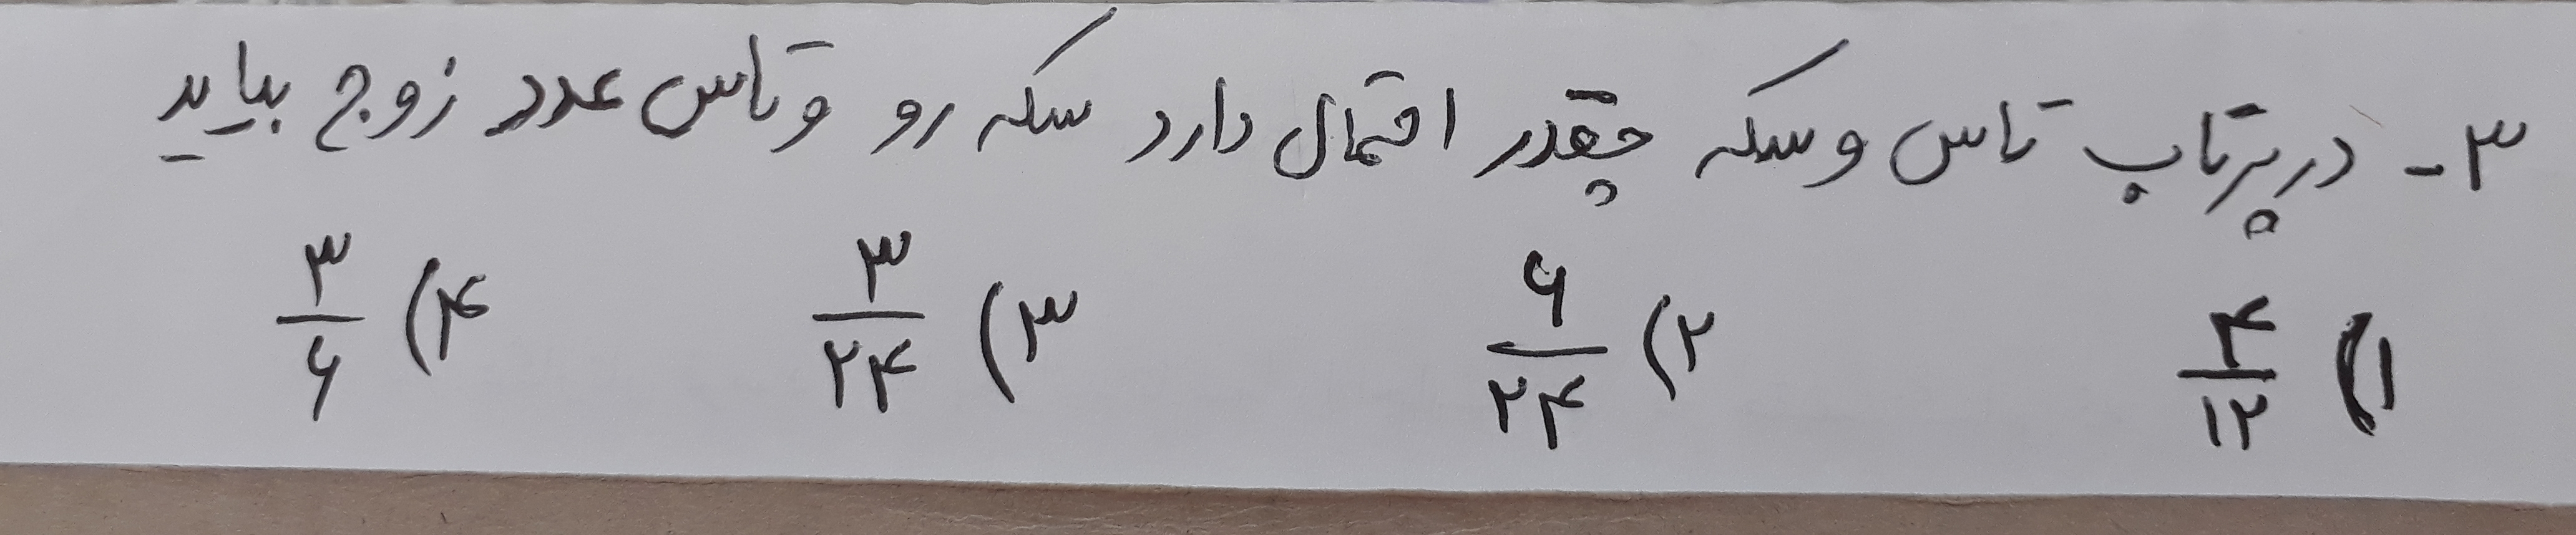 ۳- در پرتاب تاس و سکه چقدر احتمال دارد سکه رو و تاس عدد زوج بیاید
۱) ۴/۱۲ ۲) ۶/۲۴ ۳) ۳/۲۴ ۴) ۳/۶